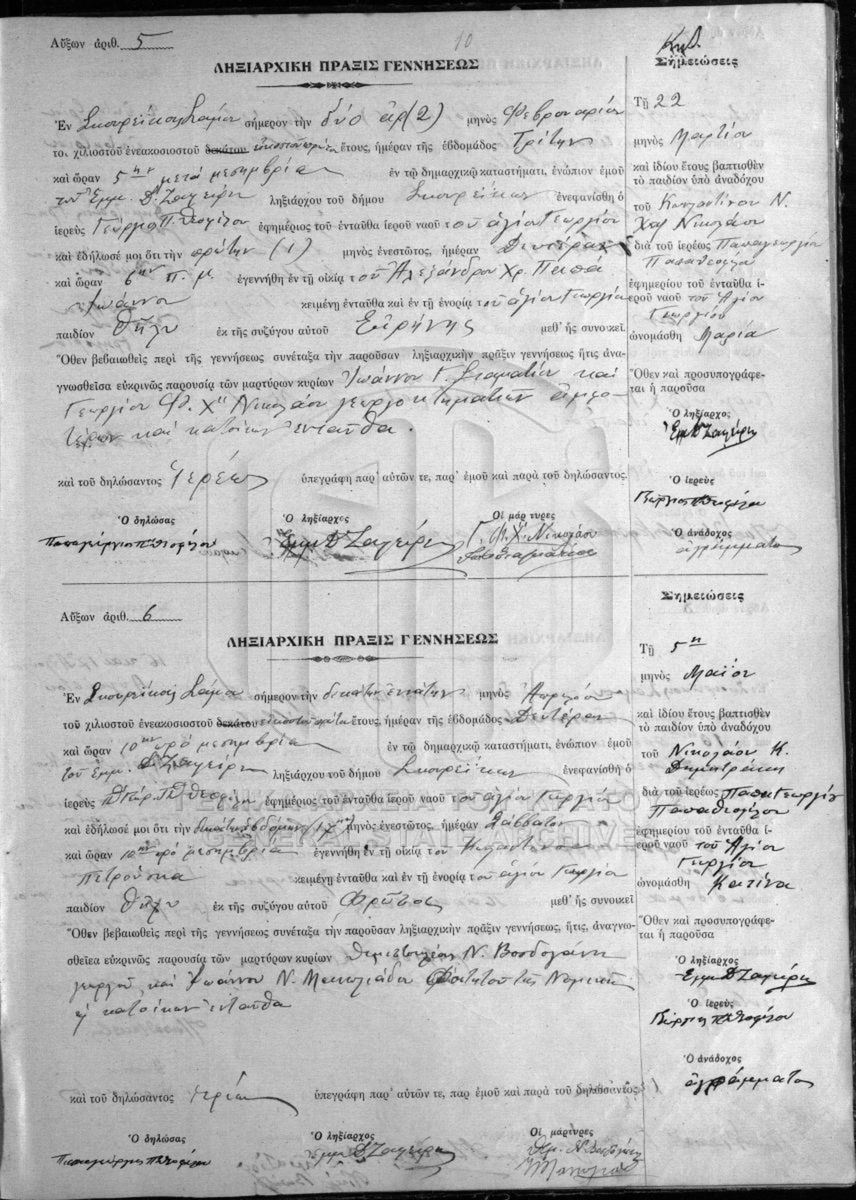 Αὔξων ἀριθ. 5
10
ΛΗΞΙΑΡΧΙΚΗ ΠΡΑΞΙΣ ΓΕΝΝΗΣΕΩΣ
Ἐν Σκουρέικοις Σάμου σήμερον τὴν δύο ἀρ (2) μηνὸς Φεβρουαρίου
τοῦ χιλιοστοῦ ἐνεακοσιοστοῦ δεκάτου εἰκοστοῦ πρώτου ἔτους, ἡμέραν τῆς ἑβδομάδος Τρίτην
καὶ ὥραν 5ην μετὰ μεσημβρίαν ἐν τῷ δημαρχικῷ καταστήματι, ἐνώπιον ἐμοῦ
τοῦ Ἐμμ. Δ. Ζαγείρη ληξιάρχου τοῦ δήμου Σκουρέικων ἐνεφανίσθη ὁ
ἱερεὺς Γεώργιος Π. Θεοφίλου ἐφημέριος τοῦ ἐνταῦθα ἱεροῦ ναοῦ τοῦ ἁγίου Γεωργίου
καὶ ἐδήλωσέ μοι ὅτι τὴν πρώτην (1) μηνὸς ἐνεστῶτος, ἡμέραν Δευτέραν
καὶ ὥραν 6ην π. μ. ἐγεννήθη ἐν τῇ οἰκίᾳ τοῦ Ἀλεξάνδρου Χρ. Παπᾶ
Ἰωάννου κειμένῃ ἐνταῦθα καὶ ἐν τῇ ἐνορίᾳ τοῦ ἁγίου Γεωργίου
παιδίον θῆλυ ἐκ τῆς συζύγου αὐτοῦ Εἰρήνης μεθ' ἧς συνοικεῖ.
Ὅθεν βεβαιωθεὶς περὶ τῆς γεννήσεως συνέταξα τὴν παροῦσαν ληξιαρχικὴν πρᾶξιν γεννήσεως ἥτις ἀνα-
γνωσθεῖσα εὐκρινῶς παρουσίᾳ τῶν μαρτύρων κυρίων Ἰωάννου Γ. Σταματίου καὶ
Γεωργίου Φ. Χ" Νικολάου γεωργοκτηματιῶν ἀμφο-
τέρων καὶ κατοίκων ἐνταῦθα.
καὶ τοῦ δηλώσαντος Ἱερέως ὑπεγράφη παρ' αὐτῶν τε, παρ' ἐμοῦ καὶ παρὰ τοῦ δηλώσαντος.
Ὁ δηλώσας Ὁ ληξίαρχος Οἱ μάρτυρες
Παπαγεώργιος Π. Θεοφίλου Ἐμμ. Δ. Ζαγείρη Γ. Φ. Χ" Νικολάου
Σημειώσεις
Τῇ 22
μηνὸς Μαρτίου
καὶ ἰδίου ἔτους βαπτισθὲν
τὸ παιδίον ὑπὸ ἀναδόχου
τοῦ Κωνσταντίνου Ν.
Χατ Νικολάου
διὰ τοῦ ἱερέως Παπαγεωργίου
Παπαθεοφίλου
ἐφημερίου τοῦ ἐνταῦθα ἱ-
εροῦ ναοῦ τοῦ Ἁγίου
Γεωργίου
ὠνομάσθη Μαρία
Ὅθεν καὶ προσυπογράφε-
ται ἡ παροῦσα
Ὁ ληξίαρχος
Ἐμμ. Δ. Ζαγείρη
Ὁ ἱερεὺς
Γεώργιος Π. Θεοφίλου
Ὁ ἀνάδοχος
ἀγράμματος
Αὔξων ἀριθ. 6
ΛΗΞΙΑΡΧΙΚΗ ΠΡΑΞΙΣ ΓΕΝΝΗΣΕΩΣ
Ἐν Σκουρέικοις Σάμου σήμερον τὴν δεκάτην ἐνάτην μηνὸς Ἀπριλίου
τοῦ χιλιοστοῦ ἐνεακοσιοστοῦ δεκάτου εἰκοστοῦ πρώτου ἔτους, ἡμέραν τῆς ἑβδομάδος Δευτέραν
καὶ ὥραν 10ην πρὸ μεσημβρίας ἐν τῷ δημαρχικῷ καταστήματι, ἐνώπιον ἐμοῦ
τοῦ Ἐμμ. Δ. Ζαγείρη ληξιάρχου τοῦ δήμου Σκουρέικων ἐνεφανίσθη ὁ
ἱερεὺς Π. Γεώρ. Π. Θεοφίλου ἐφημέριος τοῦ ἐνταῦθα ἱεροῦ ναοῦ τοῦ ἁγίου Γεωργίου
καὶ ἐδήλωσέ μοι ὅτι τὴν δεκάτην ἑβδόμην (17ην) μηνὸς ἐνεστῶτος, ἡμέραν Σάββατον
καὶ ὥραν 10ην πρὸ μεσημβρίας ἐγεννήθη ἐν τῇ οἰκίᾳ τοῦ
κειμένῃ ἐνταῦθα καὶ ἐν τῇ ἐνορίᾳ τοῦ ἁγίου Γεωργίου
παιδίον θῆλυ ἐκ τῆς συζύγου αὐτοῦ μεθ' ἧς συνοικεῖ
Ὅθεν βεβαιωθεὶς περὶ τῆς γεννήσεως συνέταξα τὴν παροῦσαν ληξιαρχικὴν πρᾶξιν γεννήσεως, ἥτις, ἀναγνω-
σθεῖσα εὐκρινῶς παρουσίᾳ τῶν μαρτύρων κυρίων Θεμιστοκλέους Ν.
γεωργοῦ καὶ Ἰωάννου Ν. Μανωλιάδου φοιτητοῦ τῆς Νομικῆς
κατοίκων ἐνταῦθα
καὶ τοῦ δηλώσαντος ἱερέως ὑπεγράφη παρ' αὐτῶν τε, παρ ἐμοῦ καὶ παρὰ τοῦ δηλώσαντος
Ὁ δηλώσας Ὁ ληξίαρχος Οἱ μάρτυρες
Παπαγεώργιος Π. Θεοφίλου Ἐμμ. Δ. Ζαγείρη
Σημειώσεις
Τῇ 5η
μηνὸς Μαΐου
καὶ ἰδίου ἔτους βαπτισθὲν
τὸ παιδίον ὑπὸ ἀναδόχου
τοῦ Νικολάου Κ.
Δημητράκη
διὰ τοῦ ἱερέως Παπα Γεωργίου
Παπαθεοφίλου
ἐφημερίου τοῦ ἐνταῦθα ἱ-
εροῦ ναοῦ τοῦ Ἁγίου
Γεωργίου
ὠνομάσθη Κατίνα
Ὅθεν καὶ προσυπογράφε-
ται ἡ παροῦσα
Ὁ ληξίαρχος
Ἐμμ. Δ. Ζαγείρη
Ὁ ἱερεὺς
Γεώργιος Π. Θεοφίλου
Ὁ ἀνάδοχος
ἀγράμματος